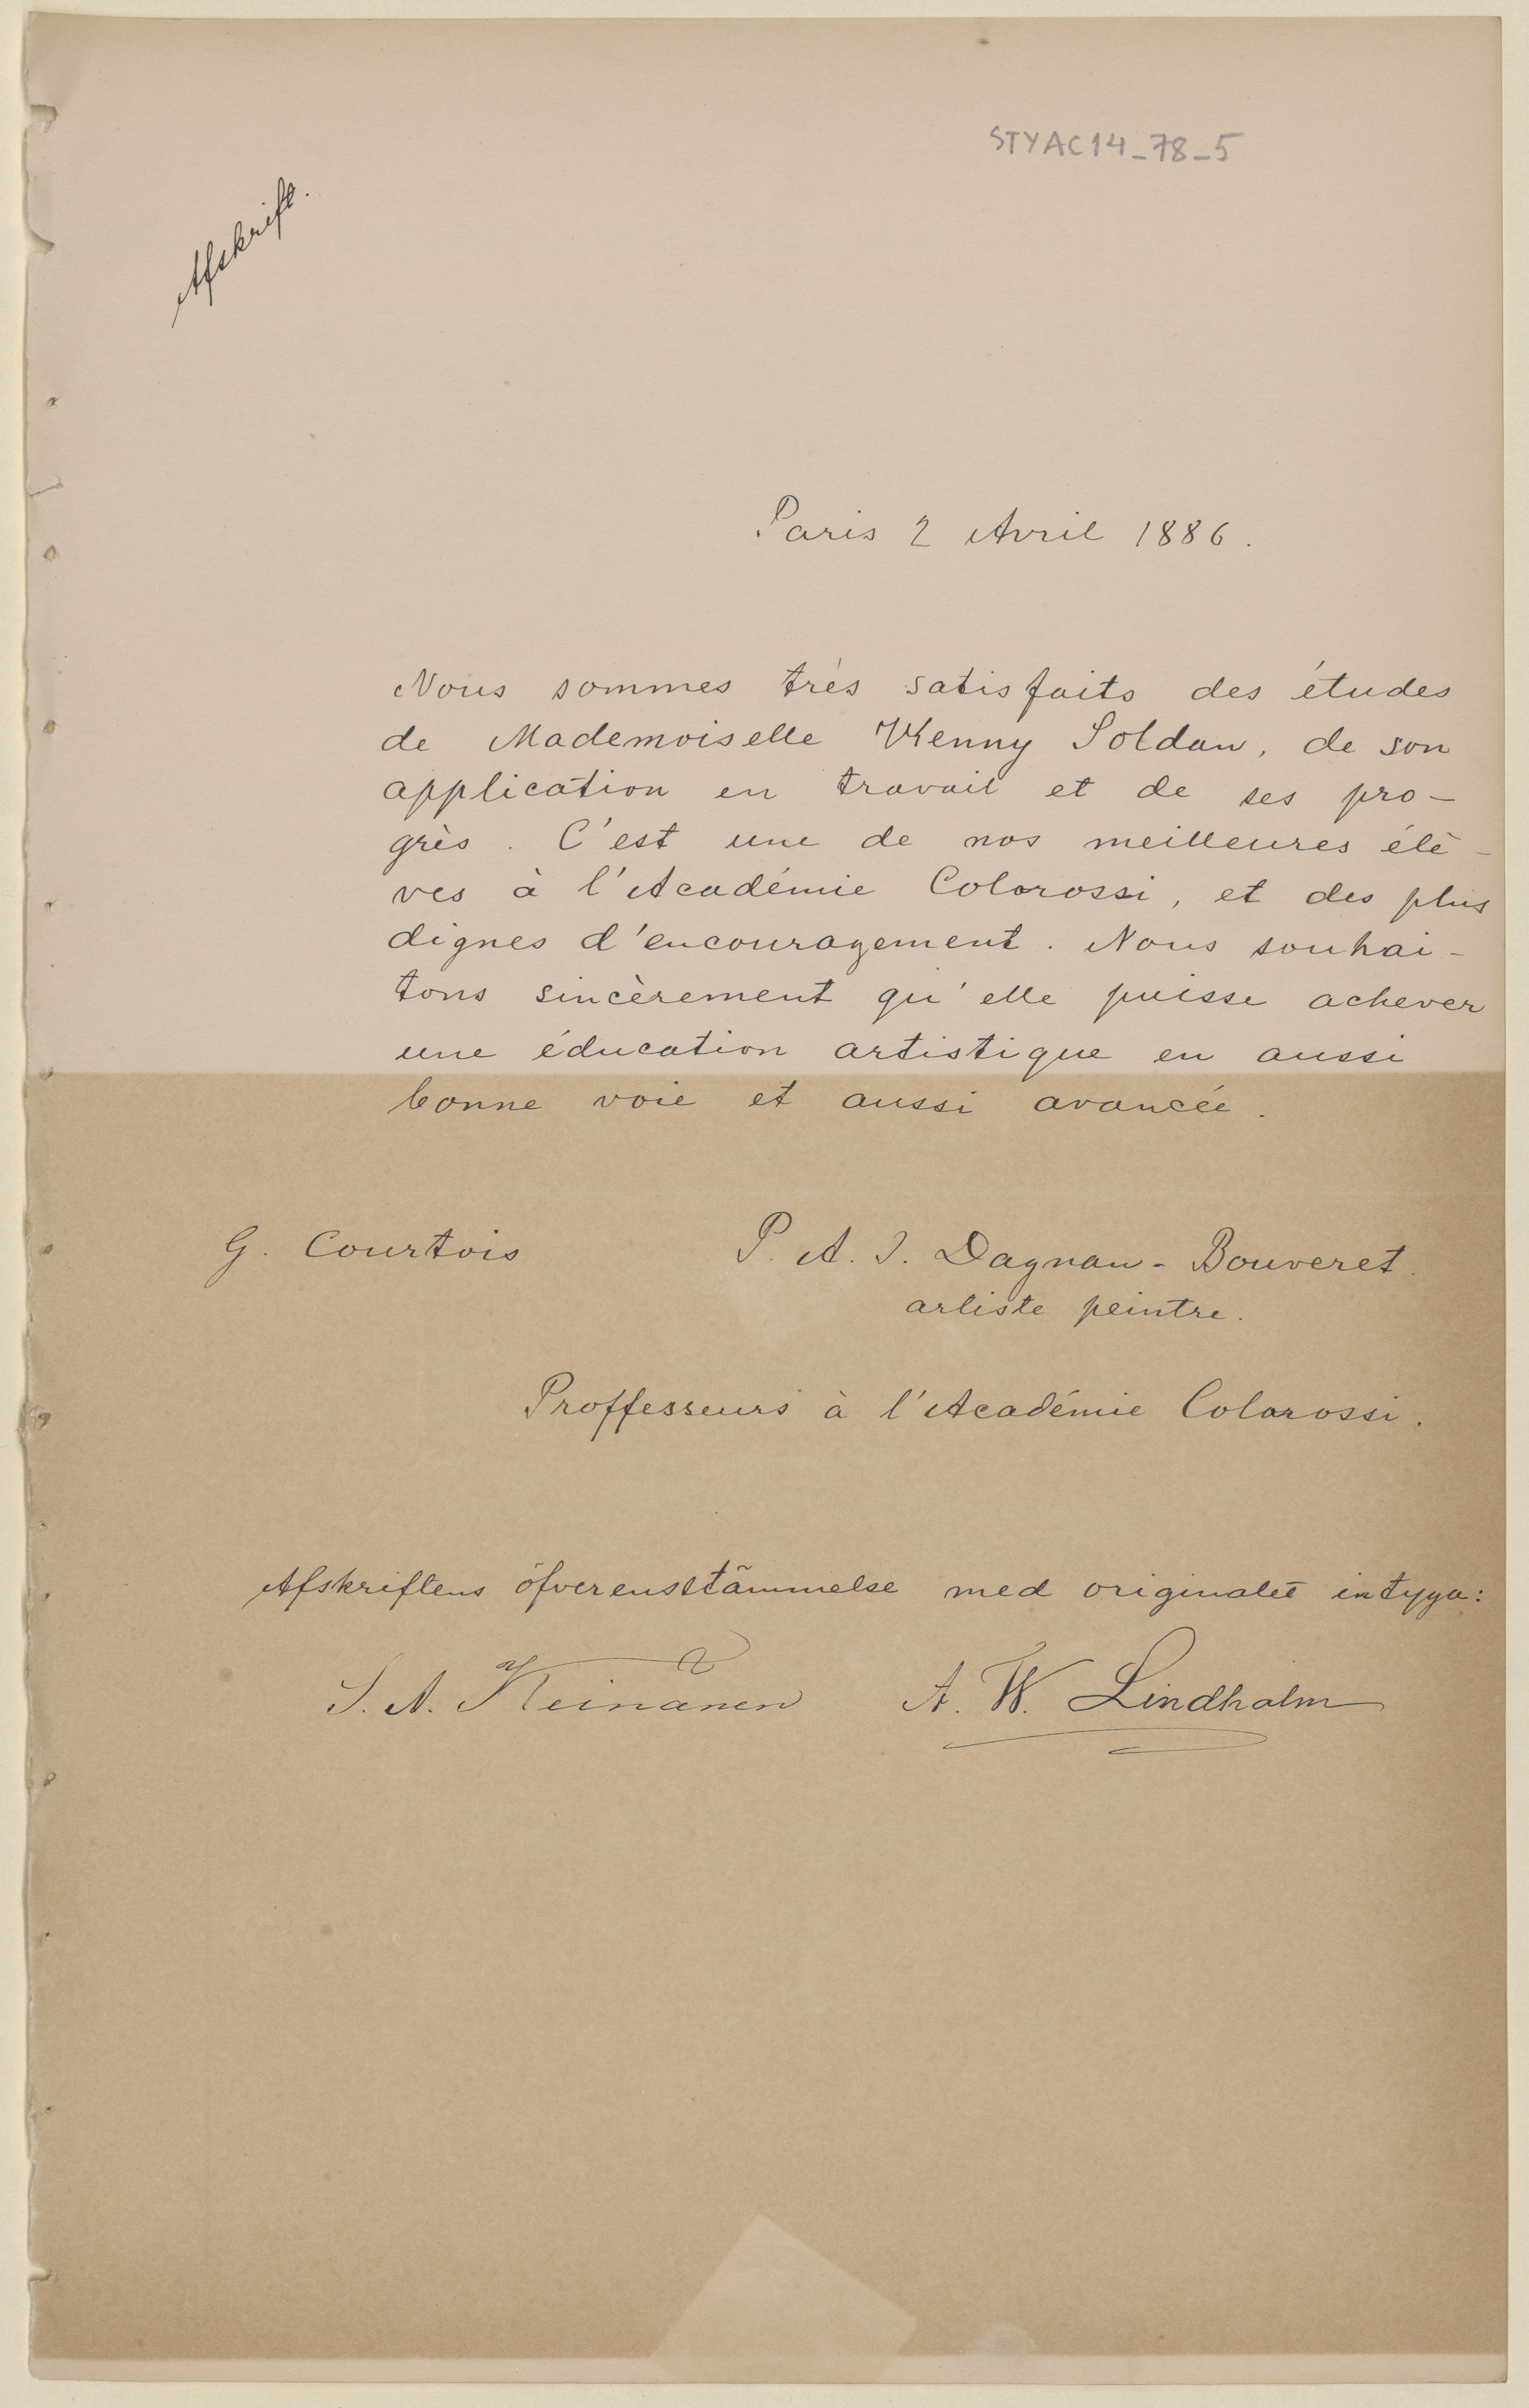 STYAC14_78_5
Afskrift.
Paris 2 Avril 1886.
Nous sommes très satisfaits des études
de Mademoiselle Wenny Soldan, de son
application en travail et de ses pro-
grès. C'est une de nos meilleures élè-
ves à l'Académie Colarossi, et des plus
dignes d'encouragement. Nous souhai-
tons sincèrement qu'elle puisse achever
une éducation artistique en aussi
bonne voie et aussi avancée.
G. Courtois P. A. J. Dagnan-Bouveret.
artiste peintre.
Proffesseurs à l'Académie Colarossi.
Afskriftens öfverensstämmelse med originalet intyga:
S. A. Keinänen A. W. Lindholm